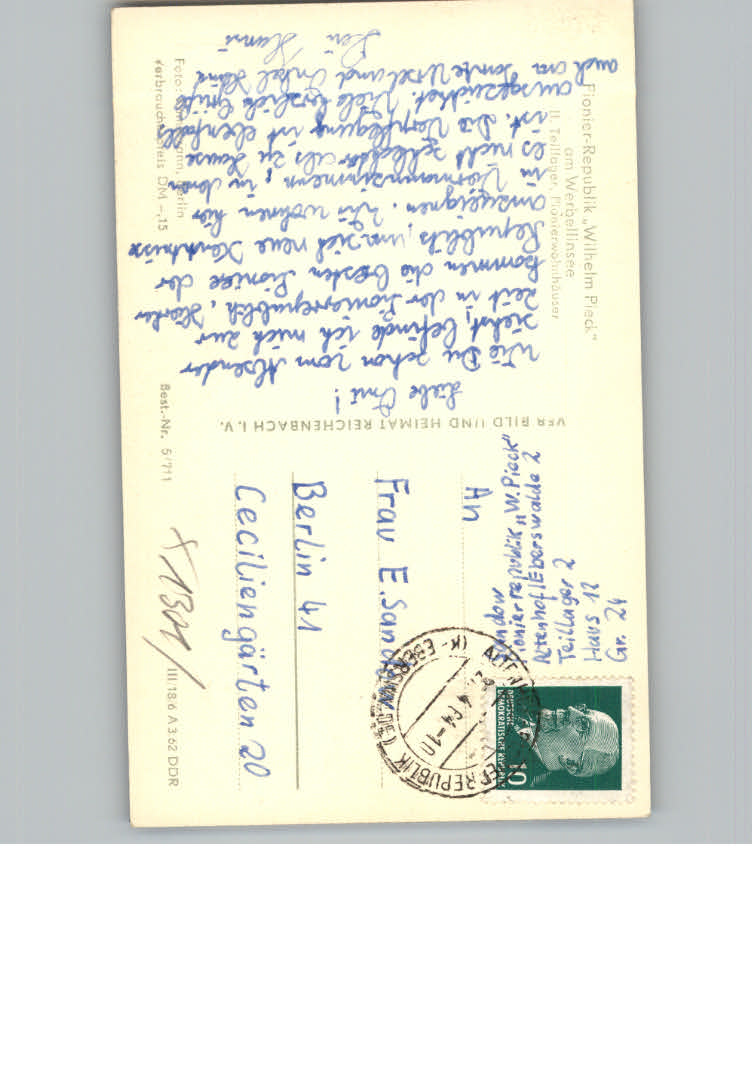 Pionier-Republik „Wilhelm Pieck"
am Werbellinsee
II. Teillager, Pionierwohnhäuser
Liebe Omi!
Wie Du schon vom Absender
siehst, befinde ich mich zur
Zeit in der Pionierrepublik. Hierher
kommen die besten Pioniere der
Republik, um sich neue Kenntnisse
anzueignen. Wir wohnen hier
in Vormannzimmern, in denen
es nicht schlechter als zu Hause
ist. Die Verpflegung ist ebenfalls
ausgezeichnet. Viele herzliche Grüße
auch an Tante Ursel und Onkel Heinz
Dein Hansi
Foto: Berlin
Verbraucherpreis DM -,15
VEB BILD UND HEIMAT REICHENBACH I. V.
Best.-Nr. 5/711
III/18/6 A 3.62 DDR
Sandow
Pionierrepublik „W. Pieck"
Altenhof/Eberswalde 2
Teillager 2
Haus 12
Gr. 24
An
Frau E. Sandow
Berlin 41
Ceciliengärten 20
DEUTSCHE
DEMOKRATISCHE REPUBLIK
10